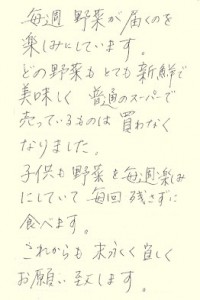 毎週 野菜が届くのを
楽しみにしています。
どの野菜も とても 新鮮で
美味しく 普通のスーパーで
売っているものは 買わなく
なりました。
子供も 野菜を毎週楽しみ
にしていて 毎回 残さずに
食べます。
これからも 末永く 宜しく
お願い 致します。